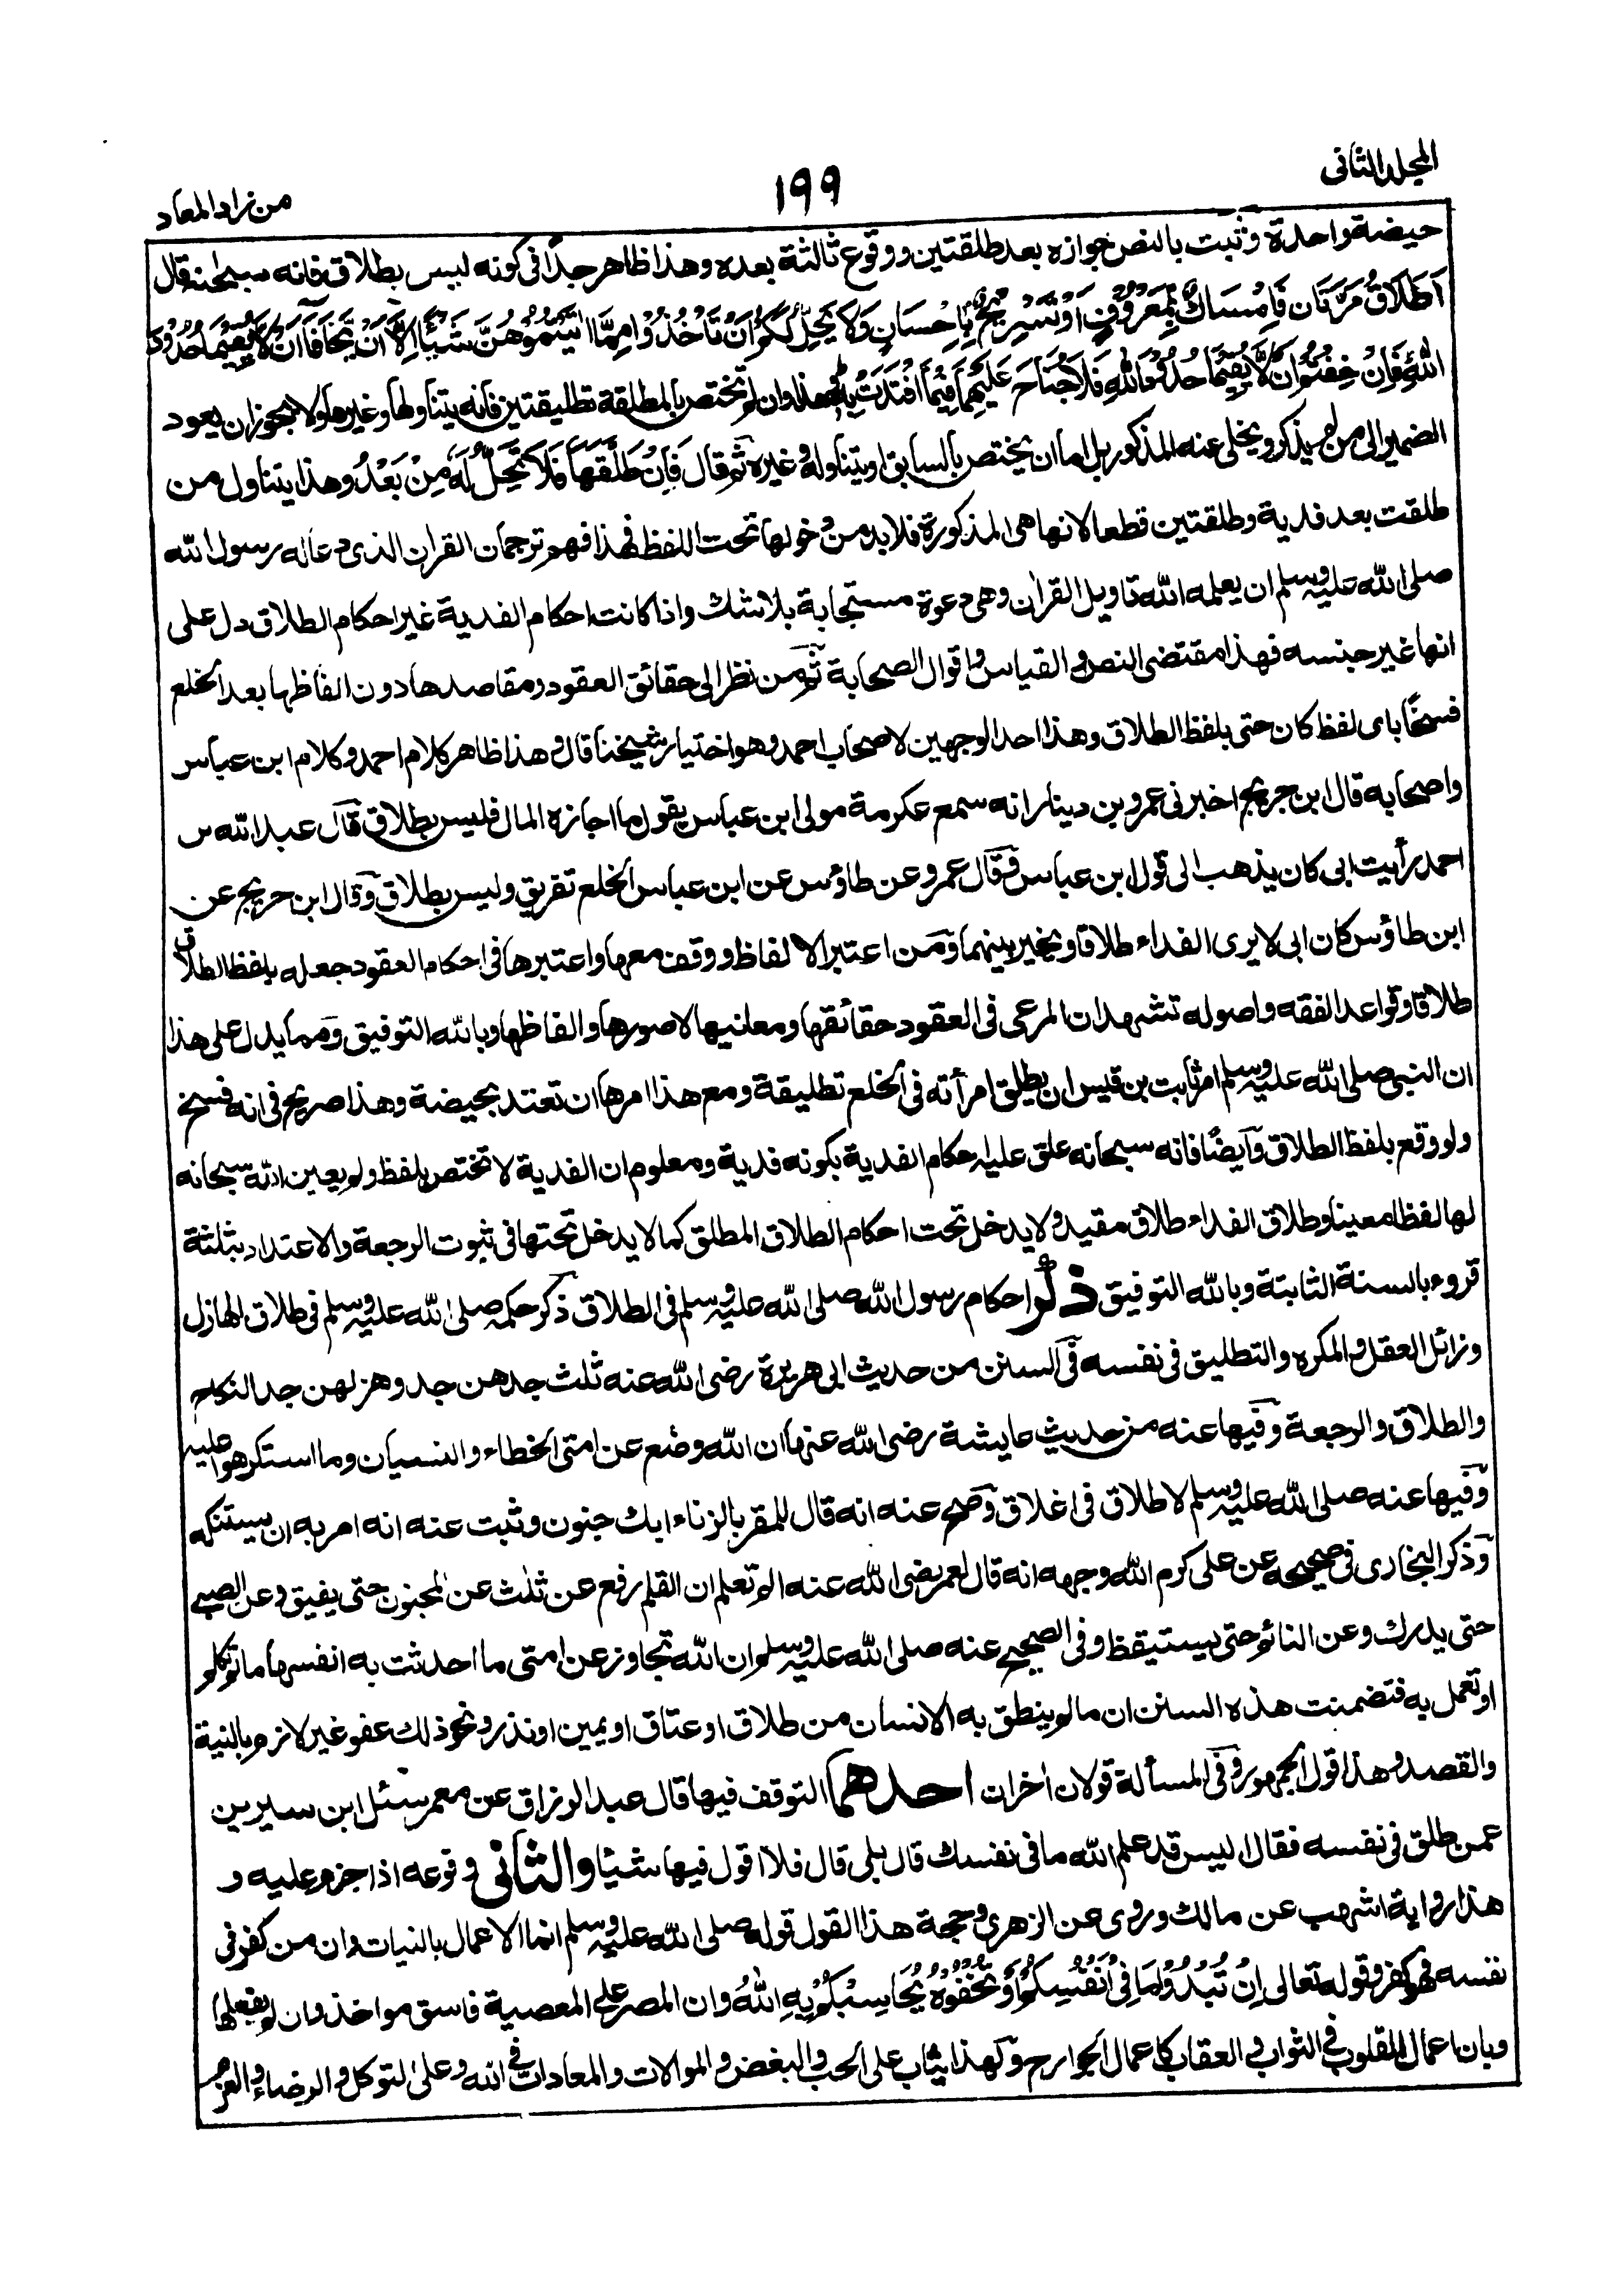 المجلد الثانى
١٩٩
من زاد المعاد
حيضة واحدة وثبت بالنص جوازه بعد طلقتين ووقوع ثالثة بعده وهذا ظاهر جدًا فى كونه ليس بطلاق فانه سبحانه قال
اَلطَّلَاقُ مَرَّتَانِ فَاِمْسَاكٌ بِمَعْرُوْفٍ اَوْ تَسْرِيْحٌ بِاِحْسَانٍ وَلَا يَحِلُّ لَكُمْ اَنْ تَأْخُذُوْا مِمَّا اٰتَيْتُمُوْهُنَّ شَيْئًا اِلَّا اَنْ يَّخَافَا اَنْ لَّا يُقِيْمَا حُدُوْدَ
اللّٰهِ فَاِنْ خِفْتُمْ اَنْ لَّا يُقِيْمَا حُدُوْدَ اللّٰهِ فَلَا جُنَاحَ عَلَيْهِمَا فِيْمَا افْتَدَتْ بِهٖ وهذا وان لم تختص بالمطلقة تطليقتين فانه يتناولها وغيرها ولا يجوز ان يعود
الضمير الى من لم يذكر ويخلى عنه المذكور بل اما ان يختص بالسابق او يتناوله وغيره ثم قال فَاِنْ طَلَّقَهَا فَلَا تَحِلُّ لَهٗ مِنْ بَعْدُ وهذا يتناول من
طلقت بعد فدية وطلقتين قطعا لانها هى المذكورة فلا بد من دخولها تحت اللفظ فهذا فهم ترجمان القران الذى دعا له رسول الله
صلى الله عليه وسلم ان يعلمه الله تاويل القران وهى دعوة مستجابة بلا شك واذا كانت احكام الفدية غير احكام الطلاق دل على
انها غير جنسه فهذا مقتضى النص والقياس واقوال الصحابة ثم من نظر الى حقائق العقود ومقاصدها دون الفاظها يعد الخلع
فسخًا باى لفظ كان حتى بلفظ الطلاق وهذا احد الوجهين لاصحاب احمد وهو اختيار شيخنا قال وهذا ظاهر كلام احمد وكلام ابن عباس
واصحابه قال ابن جريج اخبرنى عمرو بن دينار انه سمع عكرمة مولى ابن عباس يقول ما اجازه المال فليس بطلاق قال عبد الله بن
احمد رأيت ابى كان يذهب الى قول ابن عباس وقال عمرو عن طاؤس عن ابن عباس الخلع تفريق وليس بطلاق وقال ابن جريج عن
ابن طاؤس كان ابى لا يرى الفداء طلاقا ويخير بينهما ومن اعتبر الالفاظ ووقف معها واعتبرها فى احكام العقود جعله بلفظ الطلاق
طلاقا وقواعد الفقه واصوله تشهد ان المرعى فى العقود حقائقها ومعانيها لا صورها والفاظها وبالله التوفيق ومما يدل على هذا
ان النبى صلى الله عليه وسلم امر ثابت بن قيس ان يطلق امرأته فى الخلع تطليقة ومع هذا امرها ان تعتد بحيضة وهذا صريح فى انه فسخ
ولو وقع بلفظ الطلاق وايضًا فانه سبحانه علق عليه احكام الفدية بكونه فدية ومعلوم ان الفدية لا تختص بلفظ ولم يعين الله سبحانه
لها لفظا معينا وطلاق الفداء طلاق مقيد ولا يدخل تحت احكام الطلاق المطلق كما لا يدخل تحتها فى ثبوت الرجعة والاعتداد بثلثة
قروء بالسنة الثابتة وبالله التوفيق ذكر احكام رسول الله صلى الله عليه وسلم فى الطلاق ذكر حكمه صلى الله عليه وسلم فى طلاق الهازل
وزائل العقل والمكره والتطليق فى نفسه فى السنن من حديث ابى هريرة رضى الله عنه ثلث جدهن جد وهزلهن جد النكاح
والطلاق والرجعة وفيها عنه من حديث عايشة رضى الله عنها ان الله وضع عن امتى الخطاء والنسيان وما استكرهوا عليه
وفيها عنه صلى الله عليه وسلم لا طلاق فى اغلاق وصح عنه انه قال للمقر بالزناء ابك جنون وثبت عنه انه امر به ان يستنكه
وذكر البخارى فى صحيحه عن على كرم الله وجهه انه قال لعمر رضى الله عنه الم تعلم ان القلم رفع عن ثلث عن المجنون حتى يفيق وعن الصبى
حتى يدرك وعن النائم حتى يستيقظ وفى الصحيح عنه صلى الله عليه وسلم ان الله تجاوز عن امتى ما احدثت به انفسها ما لم تكلم
او تعمل به فتضمنت هذه السنن ان ما لم ينطق به الانسان من طلاق او عتاق او يمين او نذر ونحو ذلك عفو غير لازم بالنية
والقصد وهذا قول الجمهور وفى المسألة قولان اٰخران احدهما التوقف فيها قال عبد الرزاق عن معمر سئل ابن سيرين
عمن طلق فى نفسه فقال اليس قد علم الله ما فى نفسك قال بلى قال فلا اقول فيها شيئا والثانى وقوعه اذا جزم عليه و
هذا رواية اشهب عن مالك وروى عن الزهرى وحجة هذا القول قوله صلى الله عليه وسلم انما الاعمال بالنيات وان من كفر فى
نفسه فهو كفر وقوله تعالى اِنْ تُبْدُوْا مَا فِىْ اَنْفُسِكُمْ اَوْ تُخْفُوْهُ يُحَاسِبْكُمْ بِهِ اللّٰهُ وان المصر على المعصية فاسق مواخذ وان لم يفعلها
وبان اعمال القلوب فى الثواب والعقاب كاعمال الجوارح ولهذا يثاب على الحب والبغض والموالات والمعادات فى الله وعلى التوكل والرضاء والعزم